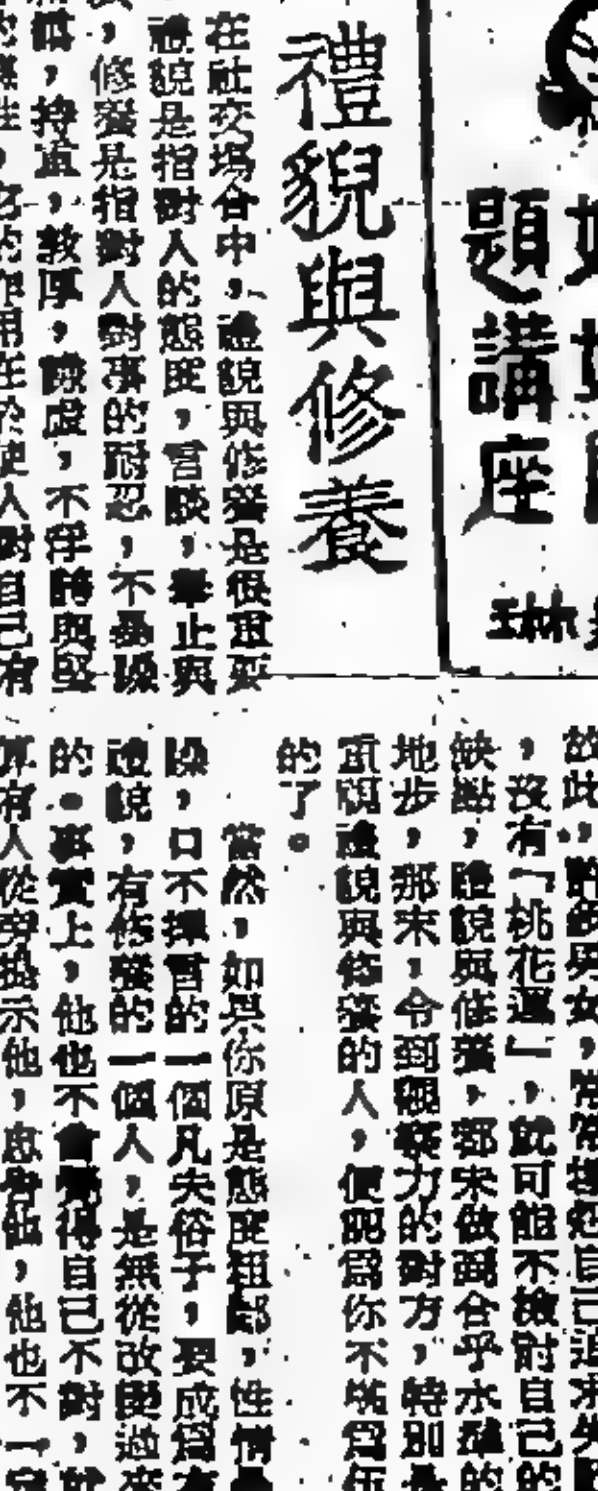 題講座
琳
禮貌與修養
在社交場合中，禮貌與修養是很重要
禮貌是指對人的態度，言談，舉止與
，修養是指對人對事的耐忍，不暴躁
，持重，敦厚，謙虛，不浮誇與堅
的作用在於使人對自己有
故此，許多男女，常常埋怨自己追求失
，沒有「桃花運」，就可能不檢討自己的
缺點，禮貌與修養，都未做到合乎水準的
地步，那末，令到觀察力的對方，特別是
重視禮貌與修養的人，便認爲你不堪爲伍
的了。
當然，如果你原是態度粗鄙，性情暴
躁，口不擇言的一個凡夫俗子，要成爲有
禮貌，有修養的一個人，是無從改變過來
的。事實上，他也不會覺得自己不對，就
算有人從旁提示他，忠告他，他也不一定